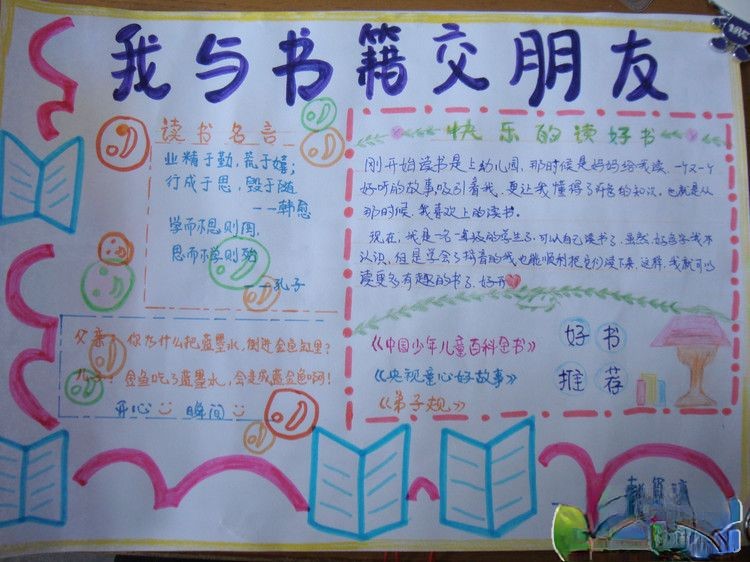 我与书籍交朋友
读书名言
业精于勤,荒于嬉;
行成于思,毁于随
——韩愈
学而不思则罔,
思而不学则殆
——孔子
父亲:你为什么把蓝墨水,倒进金鱼缸里?
儿子:金鱼吃了蓝墨水,会是成蓝金鱼啊!
开心 瞬间
快乐的读好书
刚开始读书是上幼儿园,那时候是妈妈给我读,一个又一个
好听的故事,吸引着我,更让我懂得了所有的知识,也就是从
那时候,我喜欢上的读书。
现在,我是一名真正的学生了,可以自己读书了,虽然,好多字我不
认识,但是学会了拼音的我,也能顺利把它们读下来,这样,我就可以
读更多有趣的书了,好开
《中国少年儿童百科全书》
《央视童心好故事》
《弟子规》
好书
推荐